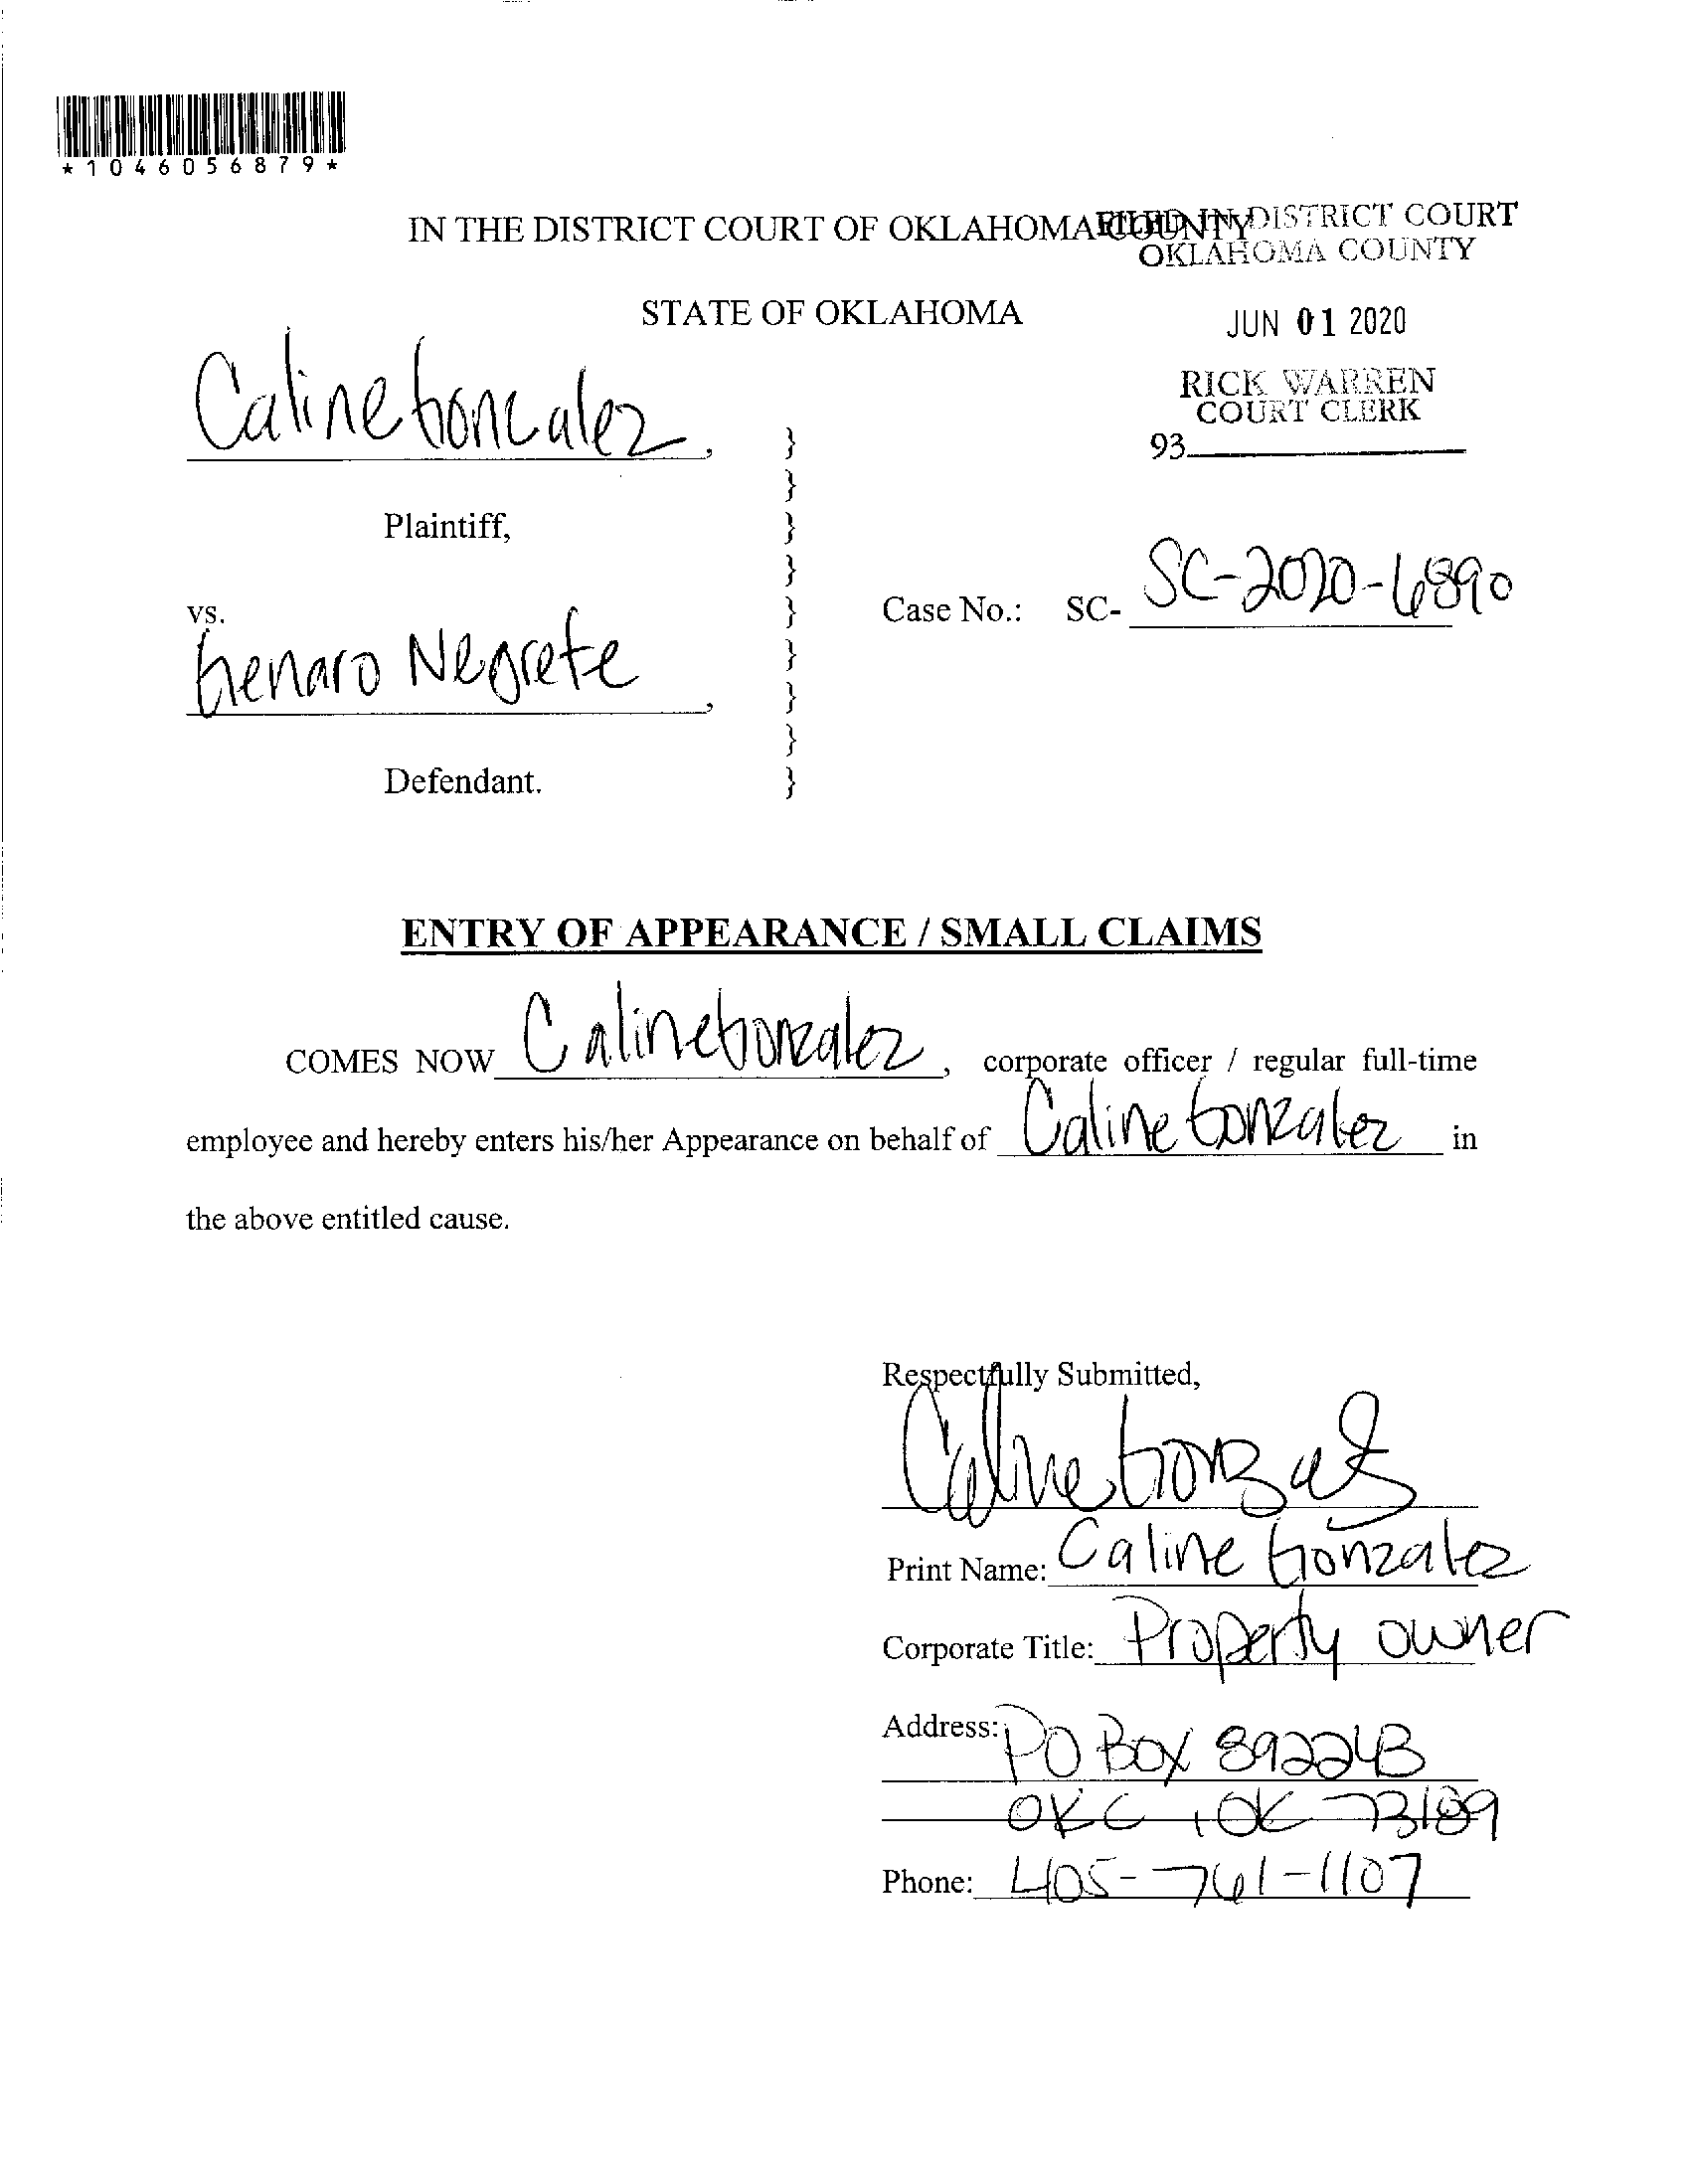 *1046056879*
IN THE DISTRICT COURT OF OKLAHOMA COUNTY
FILED IN DISTRICT COURT
OKLAHOMA COUNTY
STATE OF OKLAHOMA
JUN 01 2020
RICK WARREN
COURT CLERK
93
Caline Gonzalez,
}
}
Plaintiff, }
}
vs. }
Case No.: SC- SC-2020-6890
Genaro Negrete, }
}
}
Defendant. }
ENTRY OF APPEARANCE / SMALL CLAIMS
COMES NOW Caline Gonzalez, corporate officer / regular full-time
employee and hereby enters his/her Appearance on behalf of Caline Gonzalez in
the above entitled cause.
Respectfully Submitted,
Caline Gonzalez
Print Name: Caline Gonzalez
Corporate Title: Property owner
Address: PO Box 892243
OKC, OK 73189
Phone: 405-761-1107